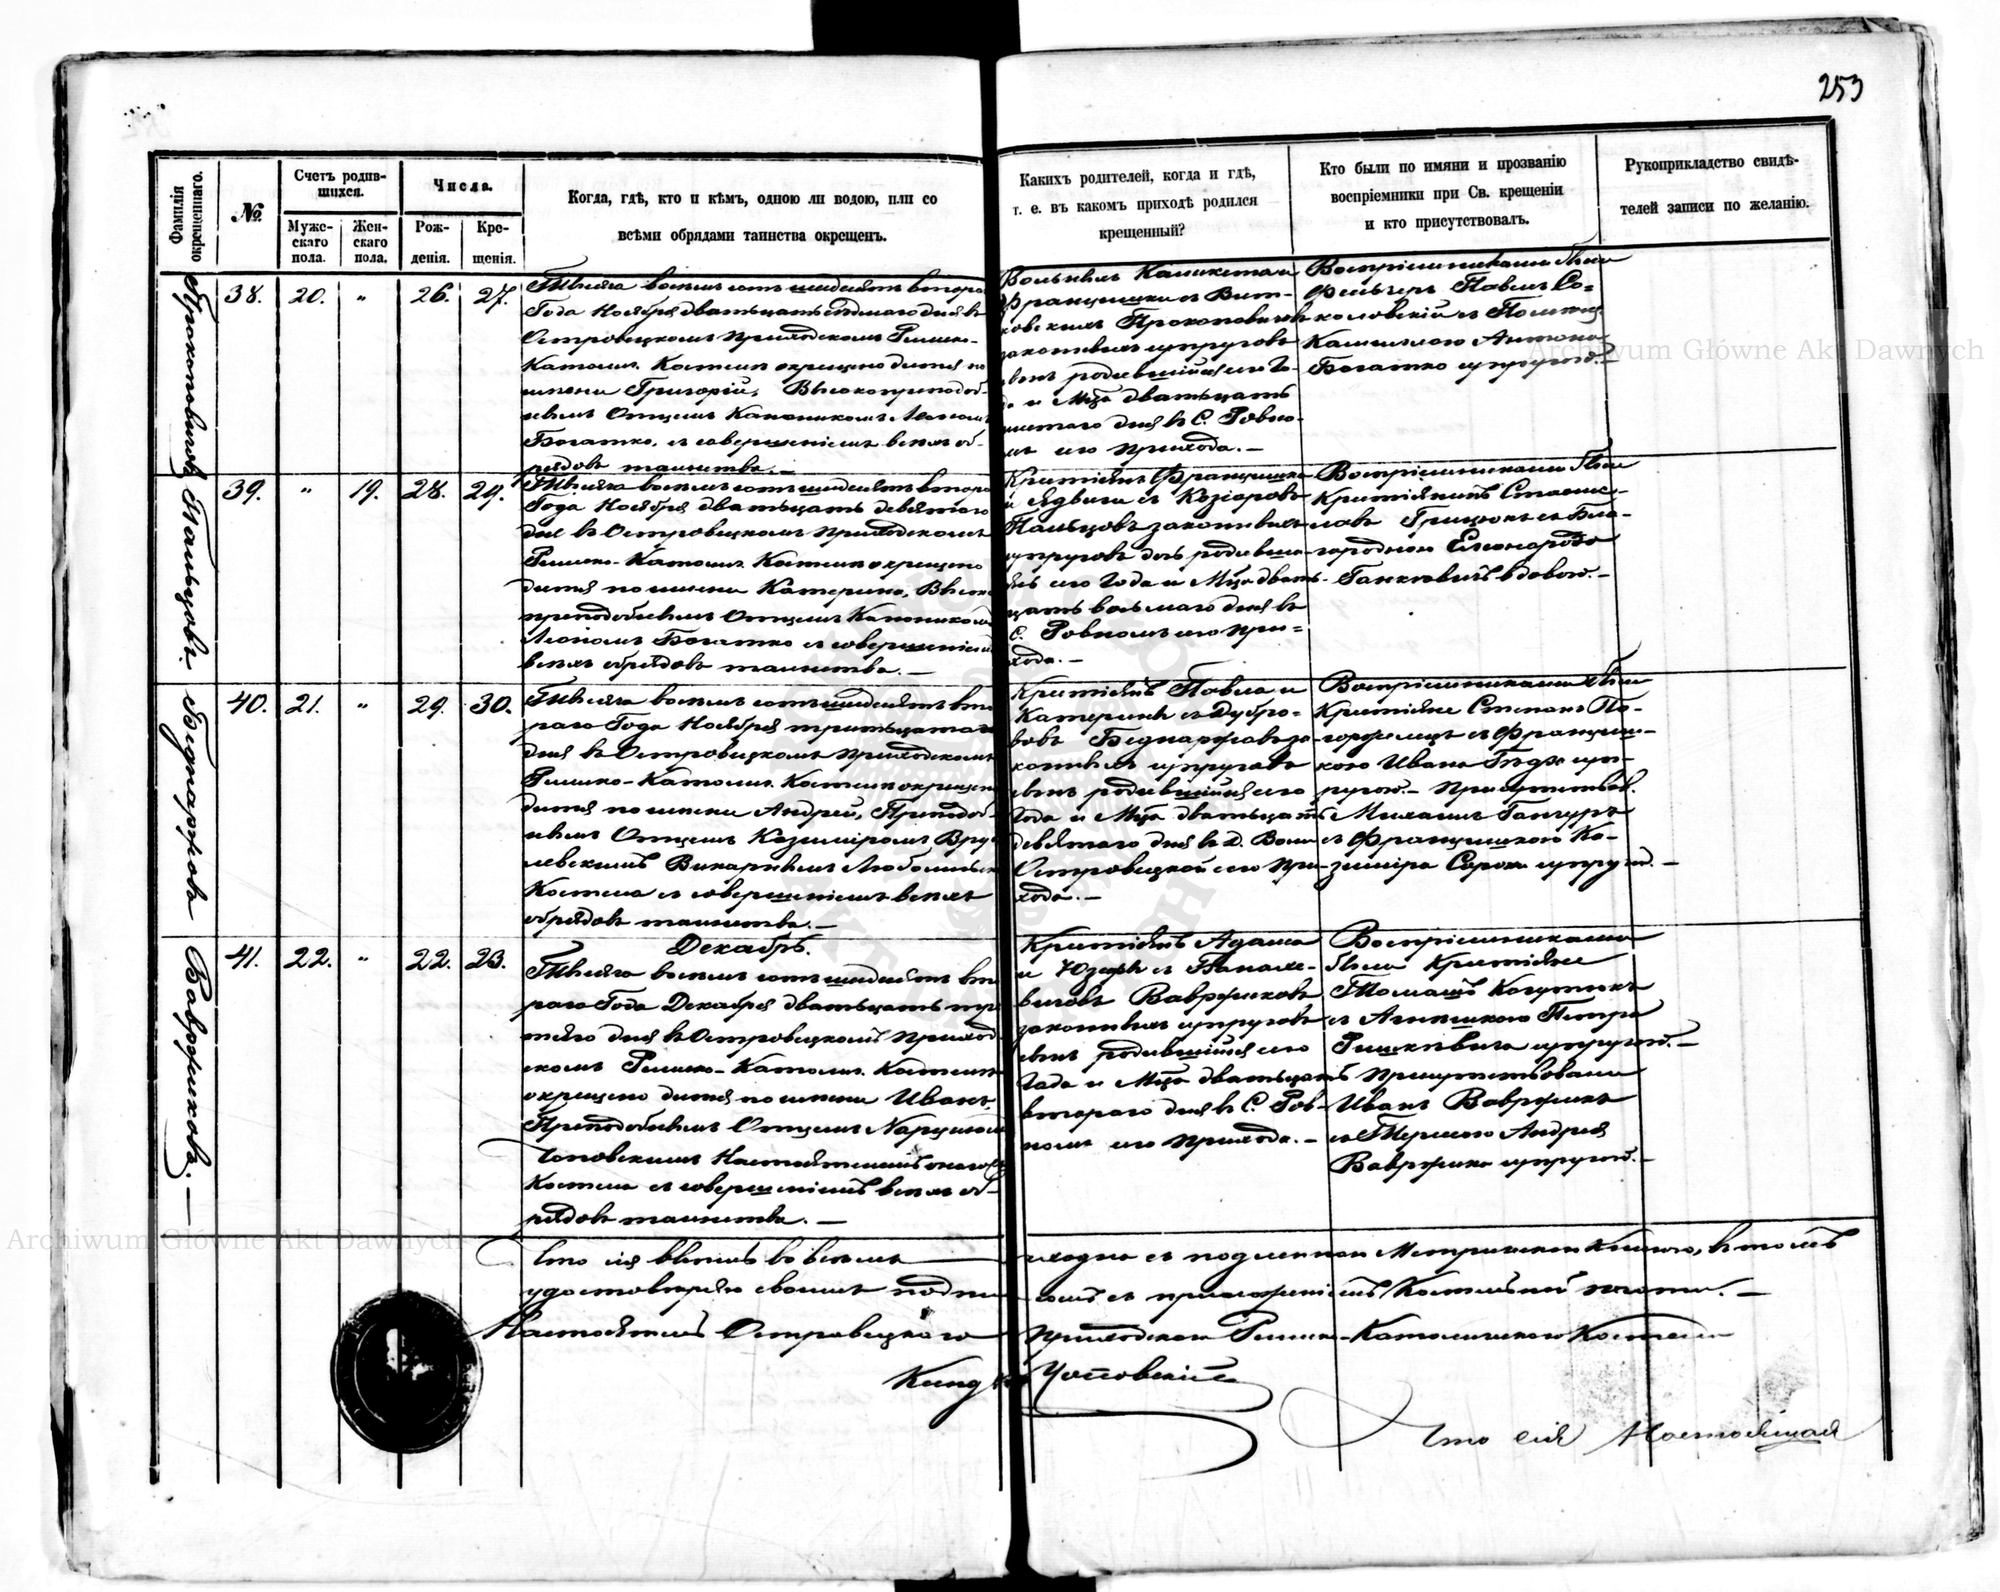 253
Фамилія окрещеннаго.
№
Счетъ родив-
шихся.
Мужс-
скаго
пола.
Жен-
скаго
пола.
Числа.
Рож-
денія.
Кре-
щенія.
Когда, гдѣ, кто и кѣмъ, одною ли водою, или со
всѣми обрядами таинства окрещенъ.
Какихъ родителей, когда и гдѣ,
т. е. въ какомъ приходѣ родился
крещенный?
Кто были по имяни и прозванію
воспріемники при Св. крещеніи
и кто присутствовалъ.
Рукоприкладство свидѣ-
телей записи по желанію.
Прокоповичовъ
38. 20. " 26. 27.
Тысяча восемь сотъ шесдесятъ второ
Года Ноября двадьцать седмаго дня въ
Островецкомъ приходскомъ Римско-
Католич. Костелѣ окрещено дитя по
имени Григорій, Высокопреподоб-
нымъ Отцемъ Каноникомъ Леономъ
Богатко, съ совершеніемъ всехъ об-
рядовъ таинства. —
Вольныхъ Каликста и
Францишки съ Вит-
ковскихъ Прокоповичовъ
законныхъ супруговъ
сынъ родившійся сего Го-
да и Мца двадьцать
шестаго дня въ С. Ровно-
мъ сего прихода. —
Воспріемниками были
Фельчеръ Павелъ Со-
коловскій съ
Антона
Богатко супругою. —
Пальцовъ.
39. " 19. 28. 29.
Тысяча восемь сотъ шесдесятъ второ
Года Ноября двадьцать девятаго
дня въ Островецкомъ приходскомъ
Римско-Католич. Костелѣ окрещено
дитя по имени Катерина, Высоко
преподобнымъ Отцемъ Каноникомъ
Леономъ Богатко съ совершеніемъ
всехъ обрядовъ таинства. —
Крестіянъ Францишка
и Ядвиги съ Козіоровъ
Пальцовъ законныхъ
супруговъ дочь родивша-
яся сего Года и Мца двадь-
цать восьмаго дня въ
С. Ровномъ сего при-
хода. —
Воспріемниками были
Крестіянинъ Станис-
лавъ Грицюкъ съ Бла-
городною Елеонорою
вдовою. —
Беднаржовъ
40. 21. " 29. 30.
Тысяча восемь сотъ шесдесятъ вто
раго Года Ноября тритьцатаго
дня въ Островецкомъ приходскомъ
Римско-Католич. Костелѣ окрещено
дитя по имени Андрей, Преподоб-
нымъ Отцемъ Казиміромъ Вру
левскимъ Викарнымъ
Костела съ совершеніемъ всехъ
обрядовъ таинства. —
Крестіянъ Павла и
Катерины съ Дубро-
вовъ Беднаржовъ за-
конныхъ супруговъ
сынъ родившійся сего
Года и Мца двадьцать
девятаго дня въ Д. Воли
Островецкой сего при-
хода. —
Воспріемниками были
Крестіяне Степанъ По-
съ Францишкою Ивана супругою. — Присутствов.
Михаилъ
съ Францишкою Ка-
зиміра Сорока супругою. —
Вавржиковъ. —
41. 22. " 22. 23.
Декабрь.
Тысяча восемь сотъ шесдесятъ вто
раго Года Декабря двадьцать тре
тяго дня въ Островецкомъ приход
скомъ Римско-Католич. Костелѣ
окрещено дитя по имени Иванъ,
Преподобнымъ Отцемъ Нарцизомъ
Чоповскимъ Настоятелемъ
Костела съ совершеніемъ всехъ об-
рядовъ таинства. —
Крестіянъ Адама
и Юзефы съ Панасе-
вичовъ Вавржиковъ
законныхъ супруговъ
сынъ родившійся сего
Года и Мца двадьцать
втораго дня въ С. Ров-
номъ сего прихода. —
Воспріемниками
были Крестіяне
Томашъ
съ Агнешкою Петра
супругою. —
Присутствовали
Иванъ Вавржикъ
съ Андрея
Вавржика супругою. —
Что сія выпись во всемъ сходна съ подлинною Метрическою Книгою, въ томъ
удостовѣряю своимъ подписомъ съ приложеніемъ Костельной печати. —
Настоятель Островецкаго приходскаго Римско-Католическаго Костела
Ксендзъ Чоповскій
Что сія Настоящая
Archiwum Główne Akt Dawnych
Archiwum Główne Akt Dawnych